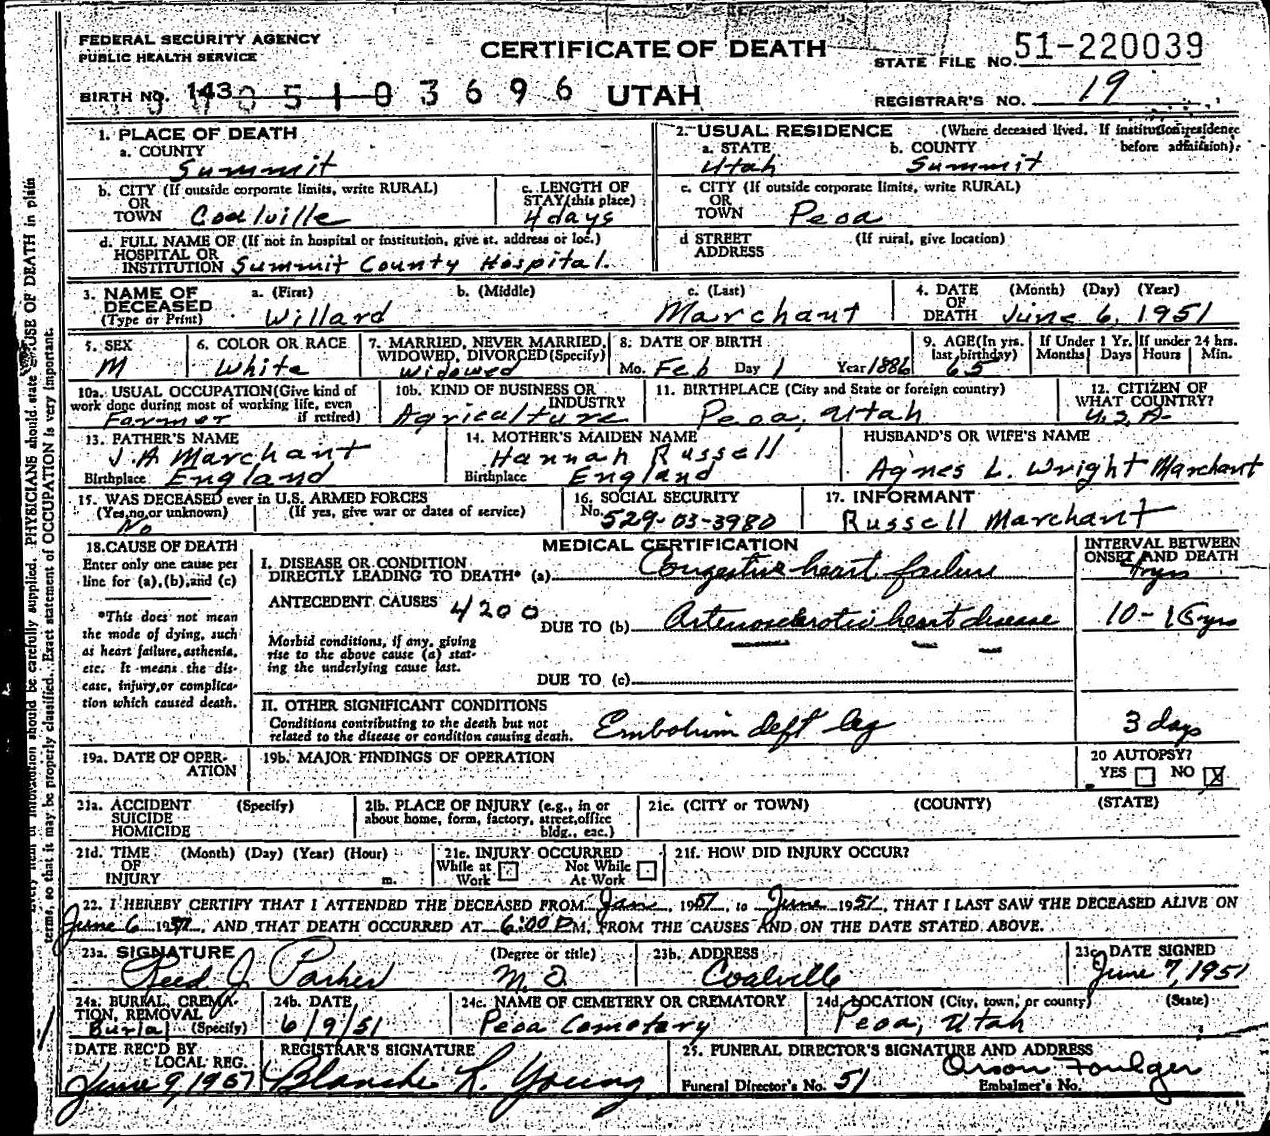 FEDERAL SECURITY AGENCY
PUBLIC HEALTH SERVICE
CERTIFICATE OF DEATH
STATE FILE NO. 51-220039
BIRTH NO. 143 051 03696 UTAH
REGISTRAR'S NO. 19
1. PLACE OF DEATH
a. COUNTY
Summit
2. USUAL RESIDENCE (Where deceased lived. If institution: residence before admission).
a. STATE Utah
b. COUNTY Summit
b. CITY (If outside corporate limits, write RURAL)
OR
TOWN Coalville
c. LENGTH OF
STAY (this place)
4 days
c. CITY (If outside corporate limits, write RURAL)
OR
TOWN Peoa
d. FULL NAME OF (If not in hospital or institution, give st. address or loc.)
HOSPITAL OR
INSTITUTION Summit County Hospital.
d STREET (If rural, give location)
ADDRESS
3. NAME OF DECEASED
(Type or Print)
a. (First) b. (Middle) c. (Last)
Willard Marchant
4. DATE OF DEATH (Month) (Day) (Year)
June 6, 1951
5. SEX
M
6. COLOR OR RACE
White
7. MARRIED, NEVER MARRIED,
WIDOWED, DIVORCED (Specify)
Widowed
8. DATE OF BIRTH
Mo. Feb Day 1 Year 1886
9. AGE (In yrs.
last birthday)
65
If Under 1 Yr.
Months Days
If under 24 hrs.
Hours Min.
10a. USUAL OCCUPATION (Give kind of
work done during most of working life, even
if retired)
Farmer
10b. KIND OF BUSINESS OR
INDUSTRY
Agriculture
11. BIRTHPLACE (City and State or foreign country)
Peoa, Utah
12. CITIZEN OF
WHAT COUNTRY?
U.S.A.
13. FATHER'S NAME
J. A Marchant
Birthplace England
14. MOTHER'S MAIDEN NAME
Hannah Russell
Birthplace England
HUSBAND'S OR WIFE'S NAME
Agnes L. Wright Marchant
15. WAS DECEASED ever in U.S. ARMED FORCES
(Yes, no, or unknown) (If yes, give war or dates of service)
No
16. SOCIAL SECURITY
No. 529-03-3980
17. INFORMANT
Russell Marchant
18. CAUSE OF DEATH
Enter only one cause per
line for (a), (b), and (c)
*This does not mean
the mode of dying, such
as heart failure, asthenia,
etc. It means the dis-
ease, injury, or complica-
tion which caused death.
MEDICAL CERTIFICATION
INTERVAL BETWEEN
ONSET AND DEATH
I. DISEASE OR CONDITION
DIRECTLY LEADING TO DEATH* (a) Congestive heart failure
yrs
ANTECEDENT CAUSES 4200
DUE TO (b) Arteriosclerotic heart disease
10-15 yrs
Morbid conditions, if any, giving
rise to the above cause (a) stat-
ing the underlying cause last.
DUE TO (c)
II. OTHER SIGNIFICANT CONDITIONS
Conditions contributing to the death but not
related to the disease or condition causing death.
Embolism left leg
3 days
19a. DATE OF OPER-
ATION
19b. MAJOR FINDINGS OF OPERATION
20 AUTOPSY?
YES NO X
21a. ACCIDENT (Specify)
SUICIDE
HOMICIDE
21b. PLACE OF INJURY (e.g., in or
about home, form, factory, street, office
bldg., eac.)
21c. (CITY or TOWN) (COUNTY) (STATE)
21d. TIME (Month) (Day) (Year) (Hour)
OF
INJURY m.
21e. INJURY OCCURRED
While at Work Not While At Work
21f. HOW DID INJURY OCCUR?
22. I HEREBY CERTIFY THAT I ATTENDED THE DECEASED FROM Jan, 1951, to June 1951, THAT I LAST SAW THE DECEASED ALIVE ON
June 6 1951, AND THAT DEATH OCCURRED AT 6:00 P M. FROM THE CAUSES AND ON THE DATE STATED ABOVE.
23a. SIGNATURE (Degree or title)
Reed J. Parker M.D.
23b. ADDRESS
Coalville
23c DATE SIGNED
June 7, 1951
24a. BURIAL, CREMA-
TION, REMOVAL
(Specify)
Burial
24b. DATE
6/9/51
24c. NAME OF CEMETERY OR CREMATORY
Peoa Cemetery
24d. LOCATION (City, town, or county) (State)
Peoa, Utah
DATE REC'D BY
LOCAL REG.
June 9, 1951
REGISTRAR'S SIGNATURE
Blanche R. Young
25. FUNERAL DIRECTOR'S SIGNATURE AND ADDRESS
Orson Foulger
Funeral Director's No. 51
Embalmer's No.
Every item of information should be carefully supplied. PHYSICIANS should state CAUSE OF DEATH in plain
terms, so that it may be properly classified. Exact statement of OCCUPATION is very important.